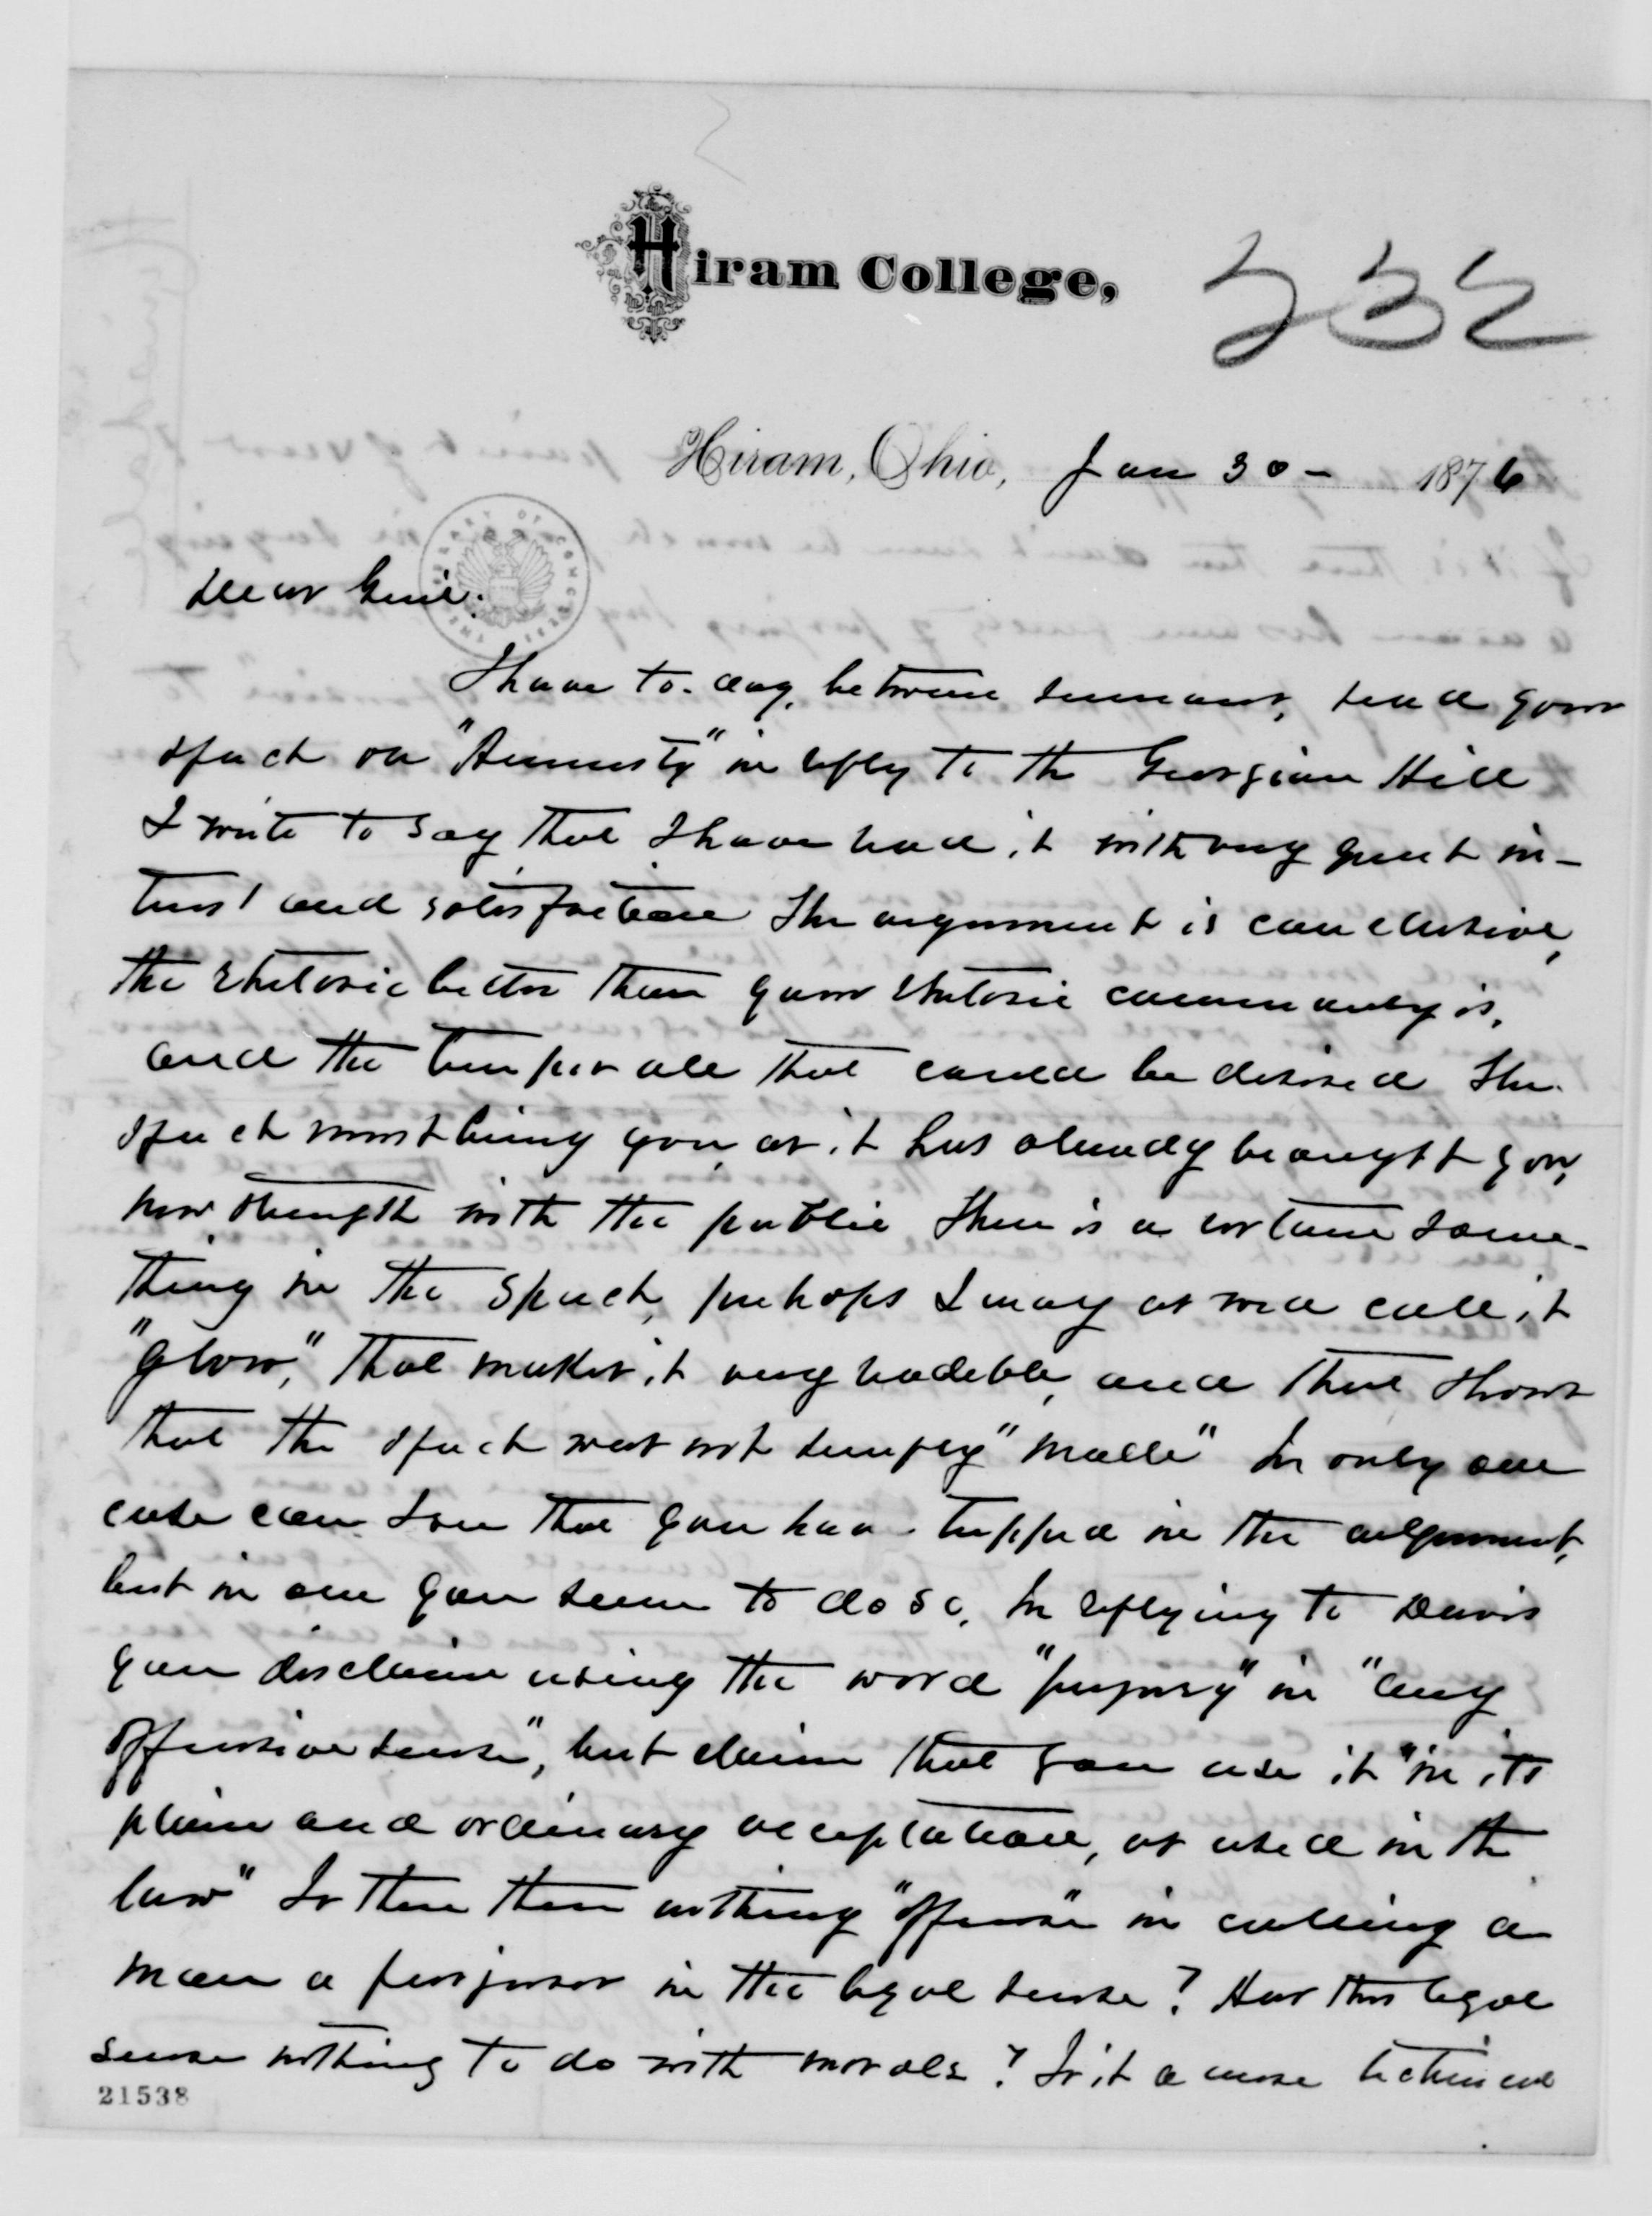 Hiram College,
232
Hiram, Ohio, Jan 30 - 1876
Dear Genl.
THE LIBRARY OF CONGRESS
I have to-day, between sermons, read your
speech on "Amnesty" in reply to the Georgian Hill
I write to say that I have read it with very great in-
terest and satisfaction The argument is conclusive,
the rhetoric better than your rhetoric commonly is,
and the temper all that could be desired The
speech must bring you, as it has already brought you,
new strength with the public There is a certain some-
thing in the speech, perhaps I may as well call it
"glow," that makes it very readable, and that shows
that the speech was not simply "made" In only one
case can I see that you have tripped in the argument,
but in one you seem to do so. In replying to Davis
you disclaim using the word "perjury" in "any
offensive sense", but claim that you use it "in its
plain and ordinary acceptation, as used in the
law" Is there then nothing "offensive" in calling a
man a perjuror in the legal sense? Has this legal
sense nothing to do with morals? Is it a mere technical
21538